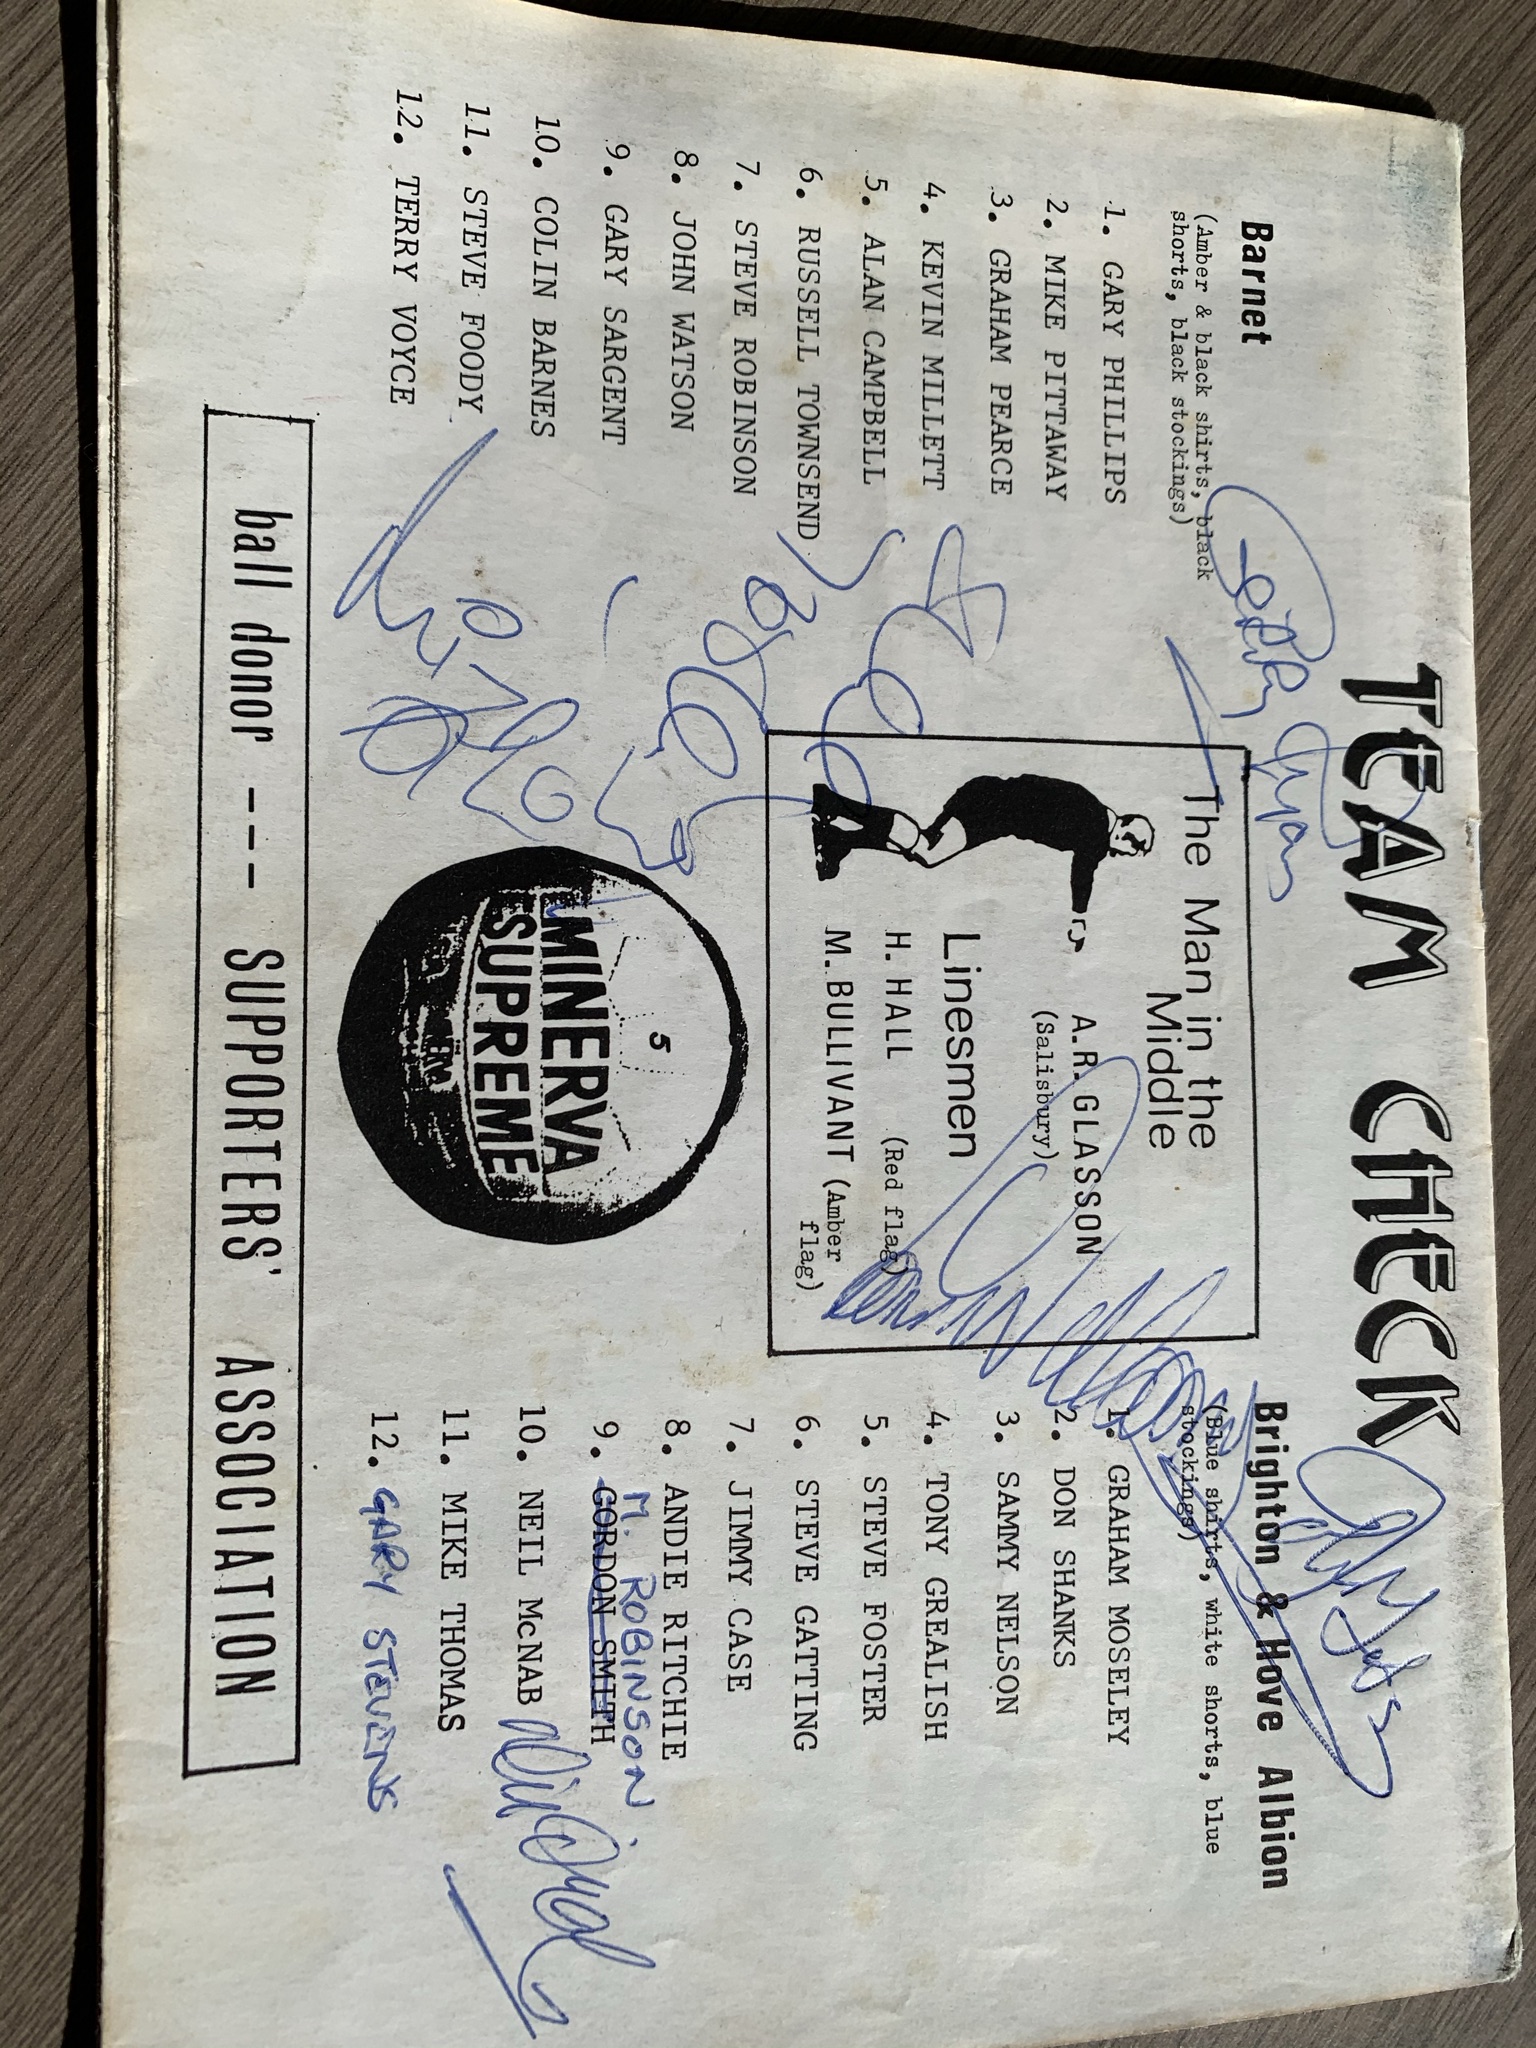 TEAM CHECK
Barnet
(Amber & black shirts, black
shorts, black stockings)
1. GARY PHILLIPS
2. MIKE PITTAWAY
3. GRAHAM PEARCE
4. KEVIN MILLETT
5. ALAN CAMPBELL
6. RUSSELL TOWNSEND
7. STEVE ROBINSON
8. JOHN WATSON
9. GARY SARGENT
10. COLIN BARNES
11. STEVE FOODY
12. TERRY VOYCE
The Man in the
Middle
A.R. GLASSON
(Salisbury)
Linesmen
H. HALL (Red flag)
M. BULLIVANT (Amber
flag)
5
MINERVA
SUPREME
Brighton & Hove Albion
(Blue shirts, white shorts, blue
stockings)
1. GRAHAM MOSELEY
2. DON SHANKS
3. SAMMY NELSON
4. TONY GREALISH
5. STEVE FOSTER
6. STEVE GATTING
7. JIMMY CASE
8. ANDIE RITCHIE
M. ROBINSON
9. GORDON SMITH
10. NEIL McNAB
11. MIKE THOMAS
12. GARY STEVENS
ball donor --- SUPPORTERS' ASSOCIATION